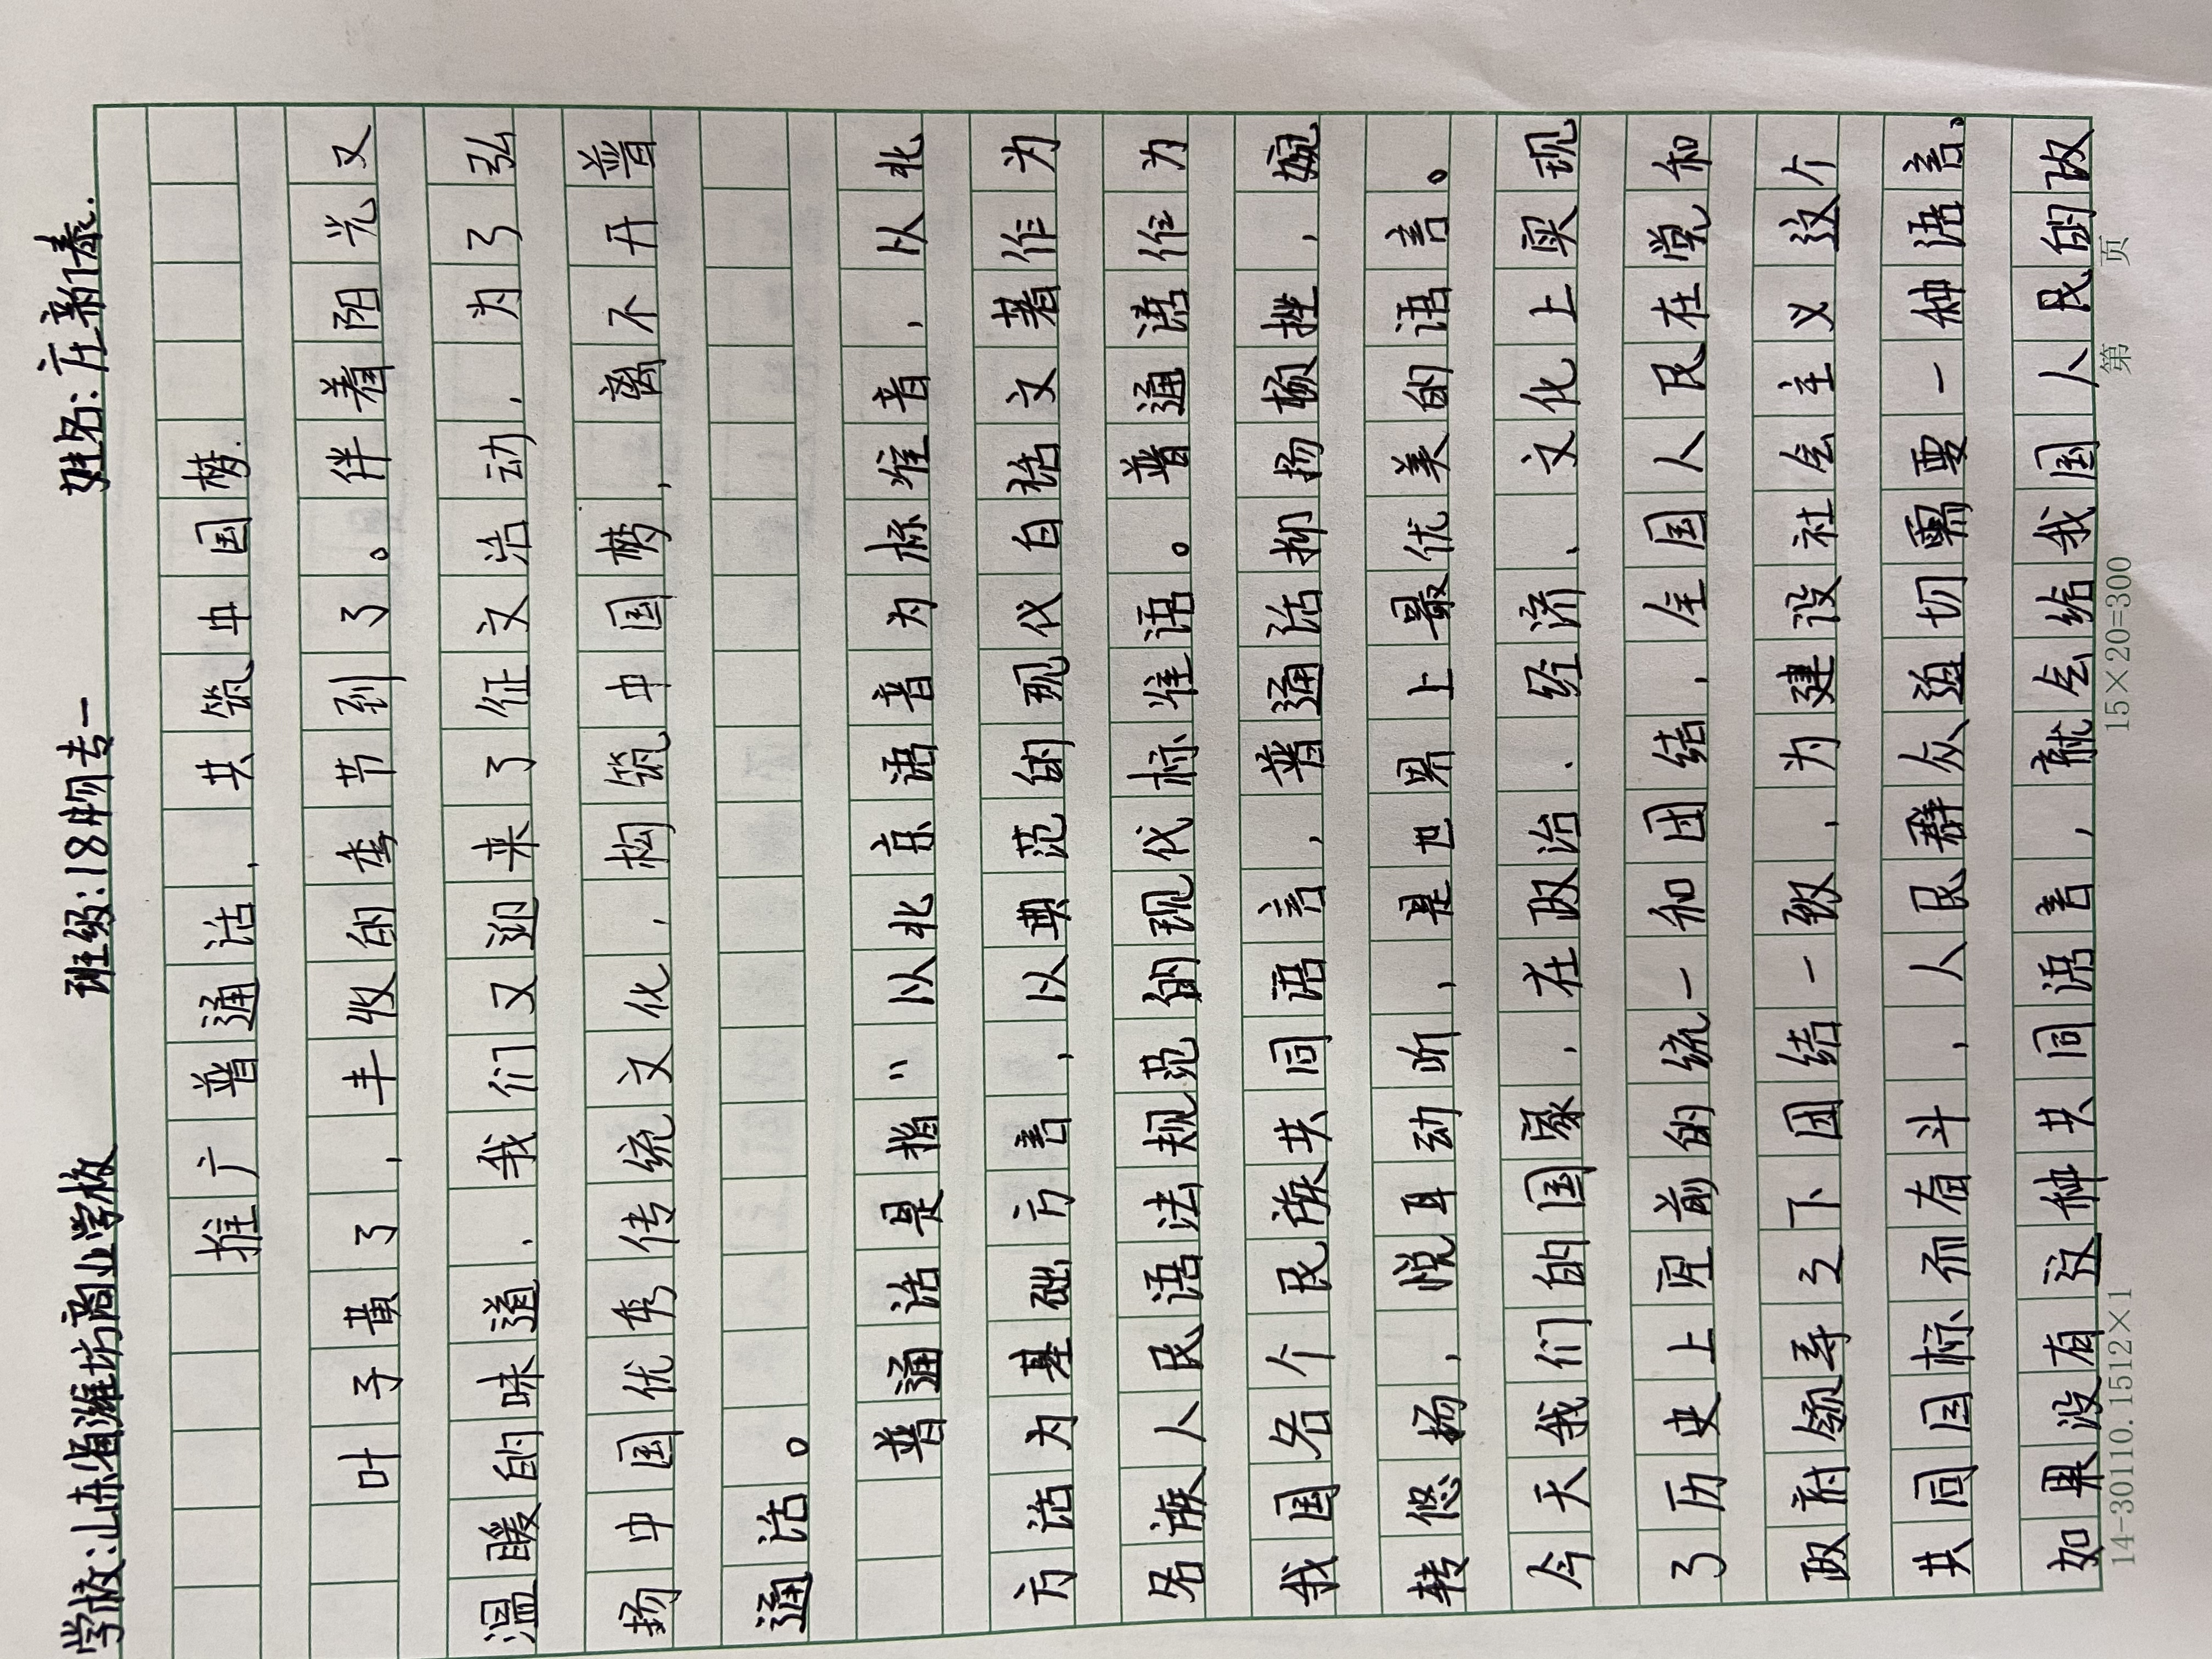 学校:山东省潍坊商业学校 班级:18物专一 姓名:庄新泰.
推广普通话,共筑中国梦.
叶子黄了,丰收的季节到了。伴着阳光又
温暖的味道,我们又迎来了征文活动,为了弘
扬中国优秀传统文化,构筑中国梦,离不开普
通话。
普通话是指"以北京语音为标准音,以北
方话为基础方言,以典范的现代白话文著作为
各族人民语法规范的现代标准语。普通话作为
我国各个民族共同语言,普通话抑扬顿挫,婉
转悠扬,悦耳动听,是世界上最优美的语言。
今天我们的国家,在政治、经济、文化上实现
了历史上空前的统一和团结,全国人民在党和
政府领导之下团结一致,为建设社会主义这个
共同目标而奋斗,人民群众迫切需要一种语言。
如果没有这种共同语言,就会给我国人民的政
14-30110.1512×1 15×20=300 第 页